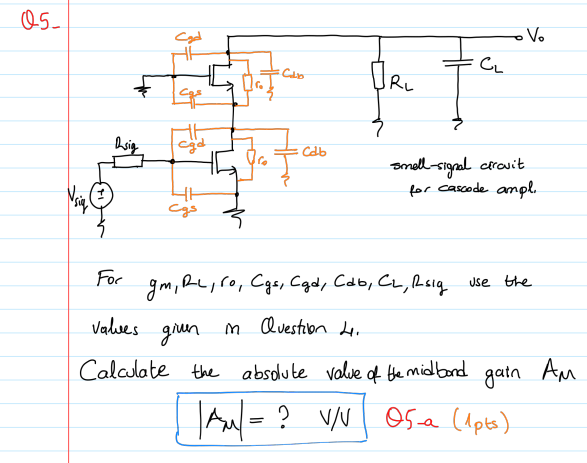 Q5-
Cgd
Vo
Cdb
ro
Cgs
RL
CL
Rsig
Cgd
ro
Cdb
Vsig
Cgs
small-signal circuit
for cascode ampl.
For gm, RL, ro, Cgs, Cgd, Cdb, CL, Rsig use the
values given in Question 4.
Calculate the absolute value of the midband gain AM
|AM| = ? V/V Q5-a (1pts)